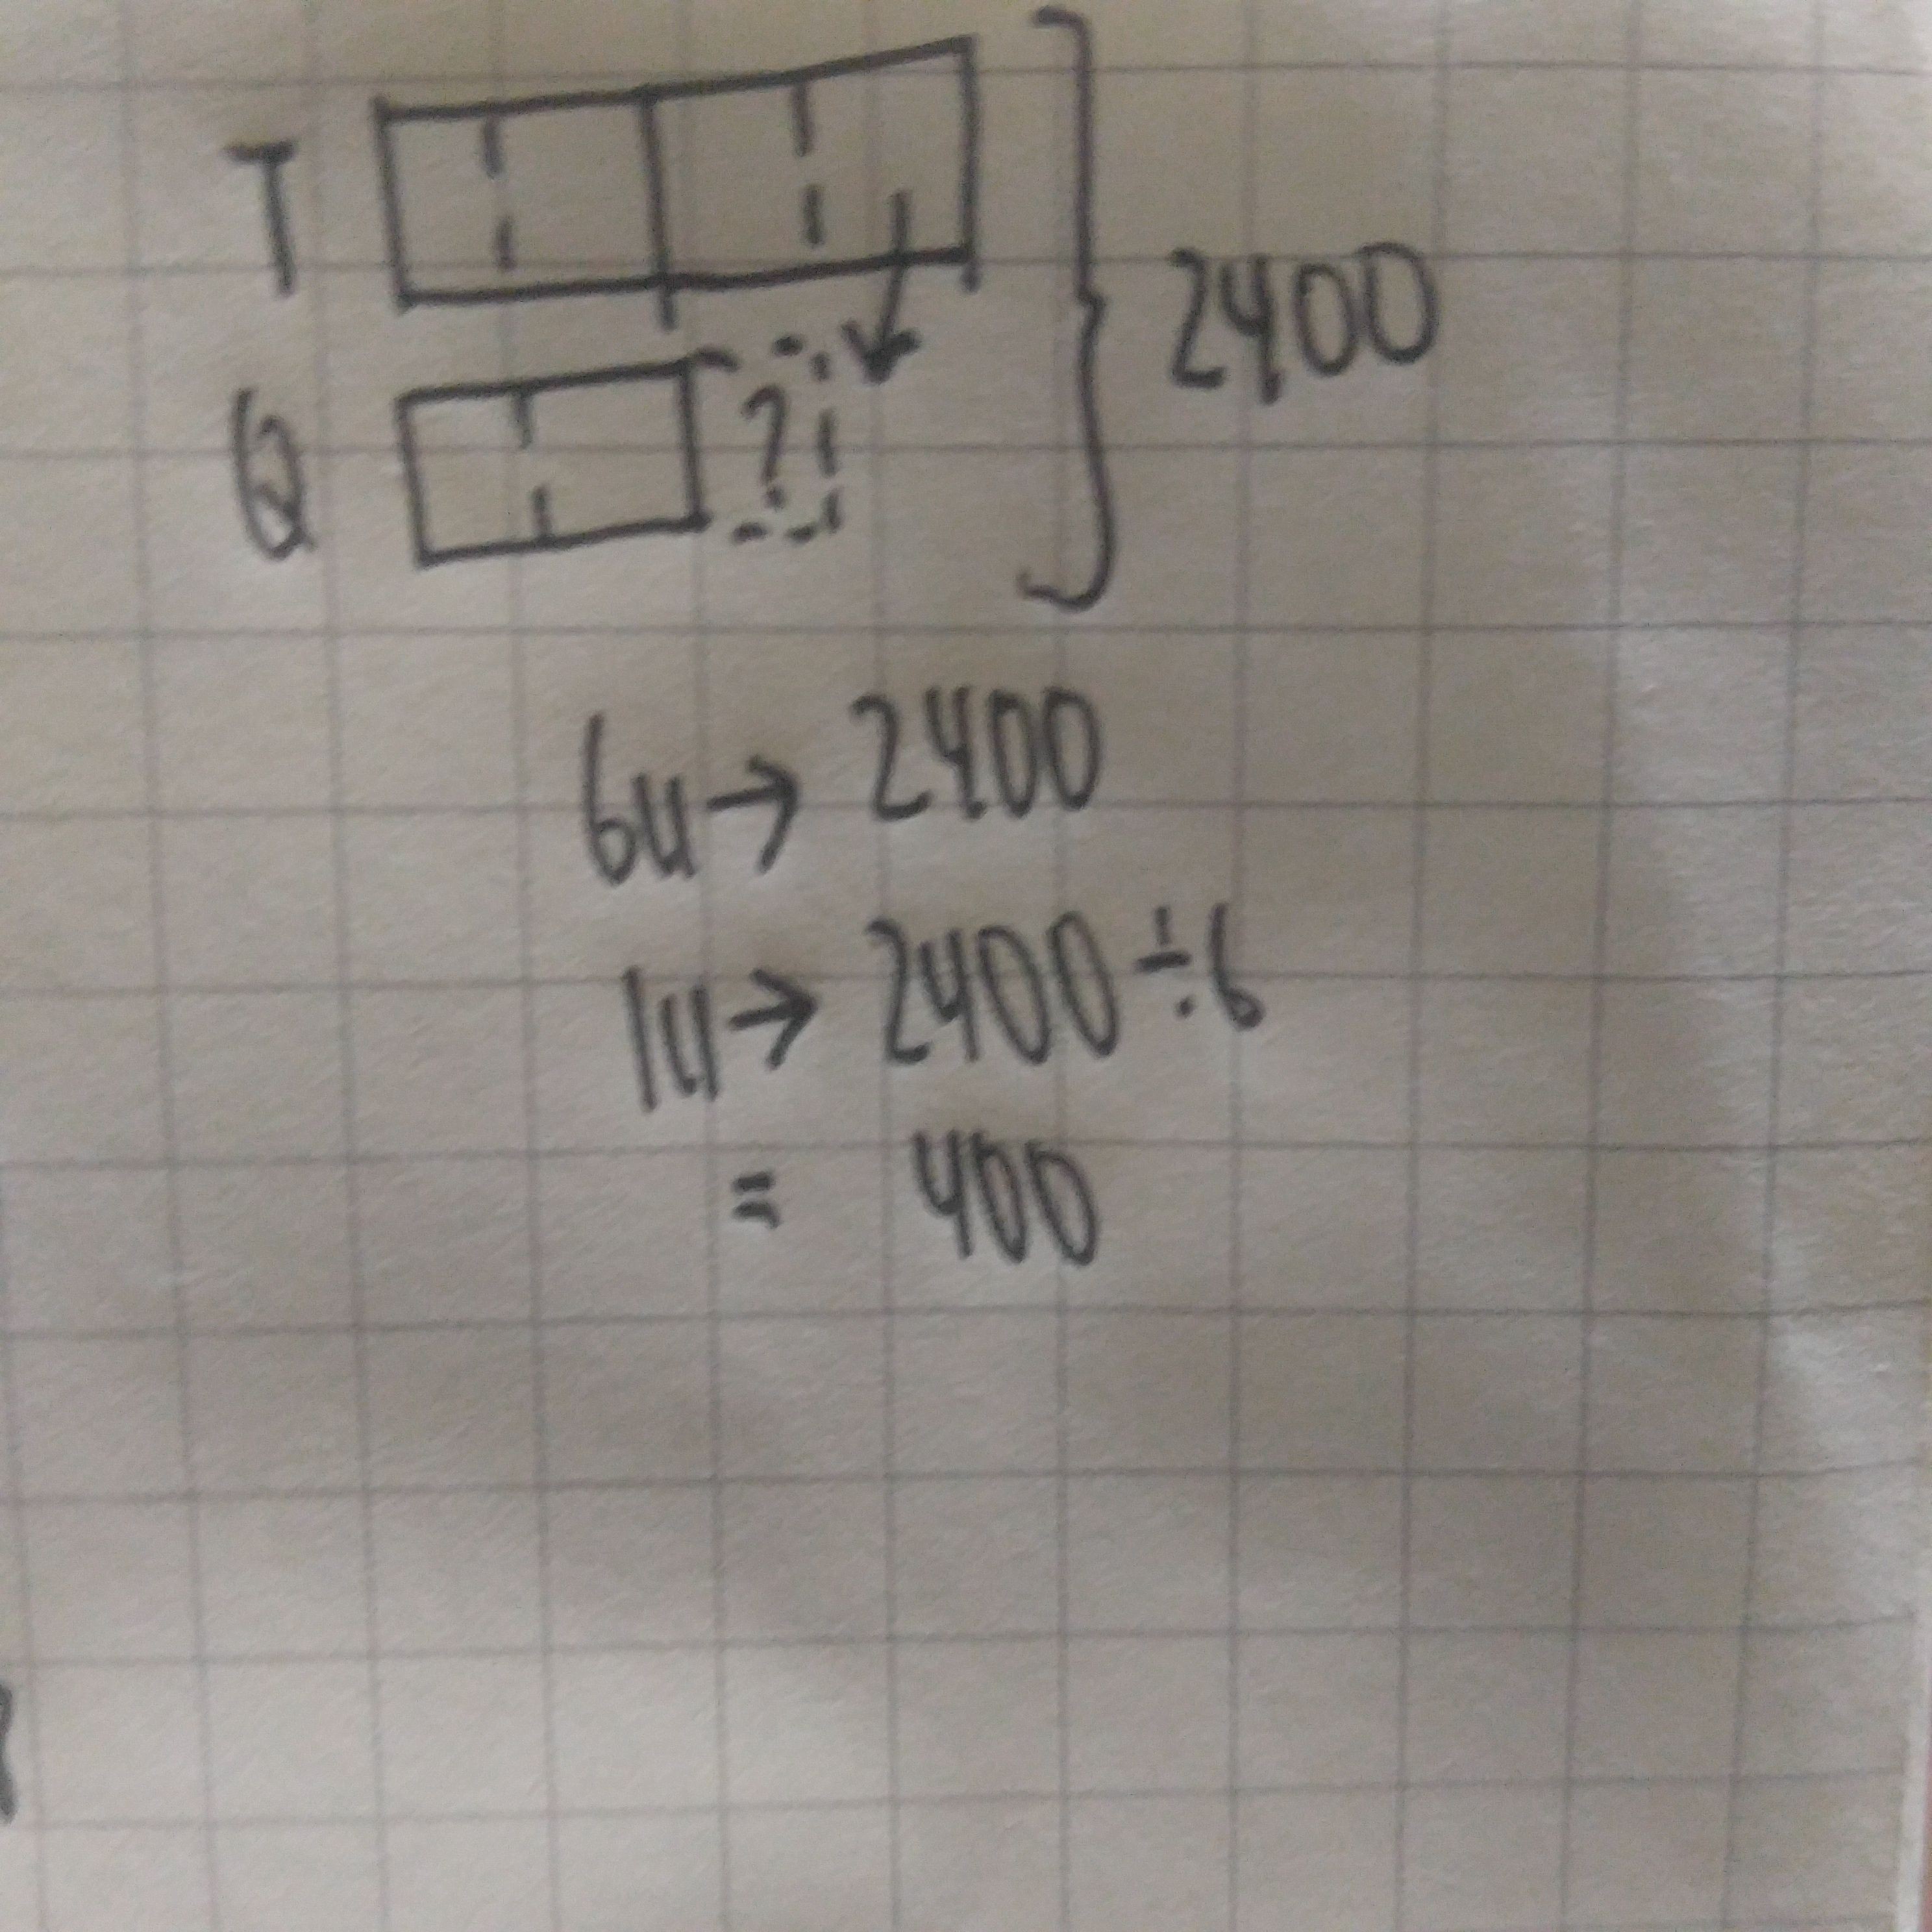 T
2400
Q
?
6u→ 2400
1u→ 2400÷6
= 400